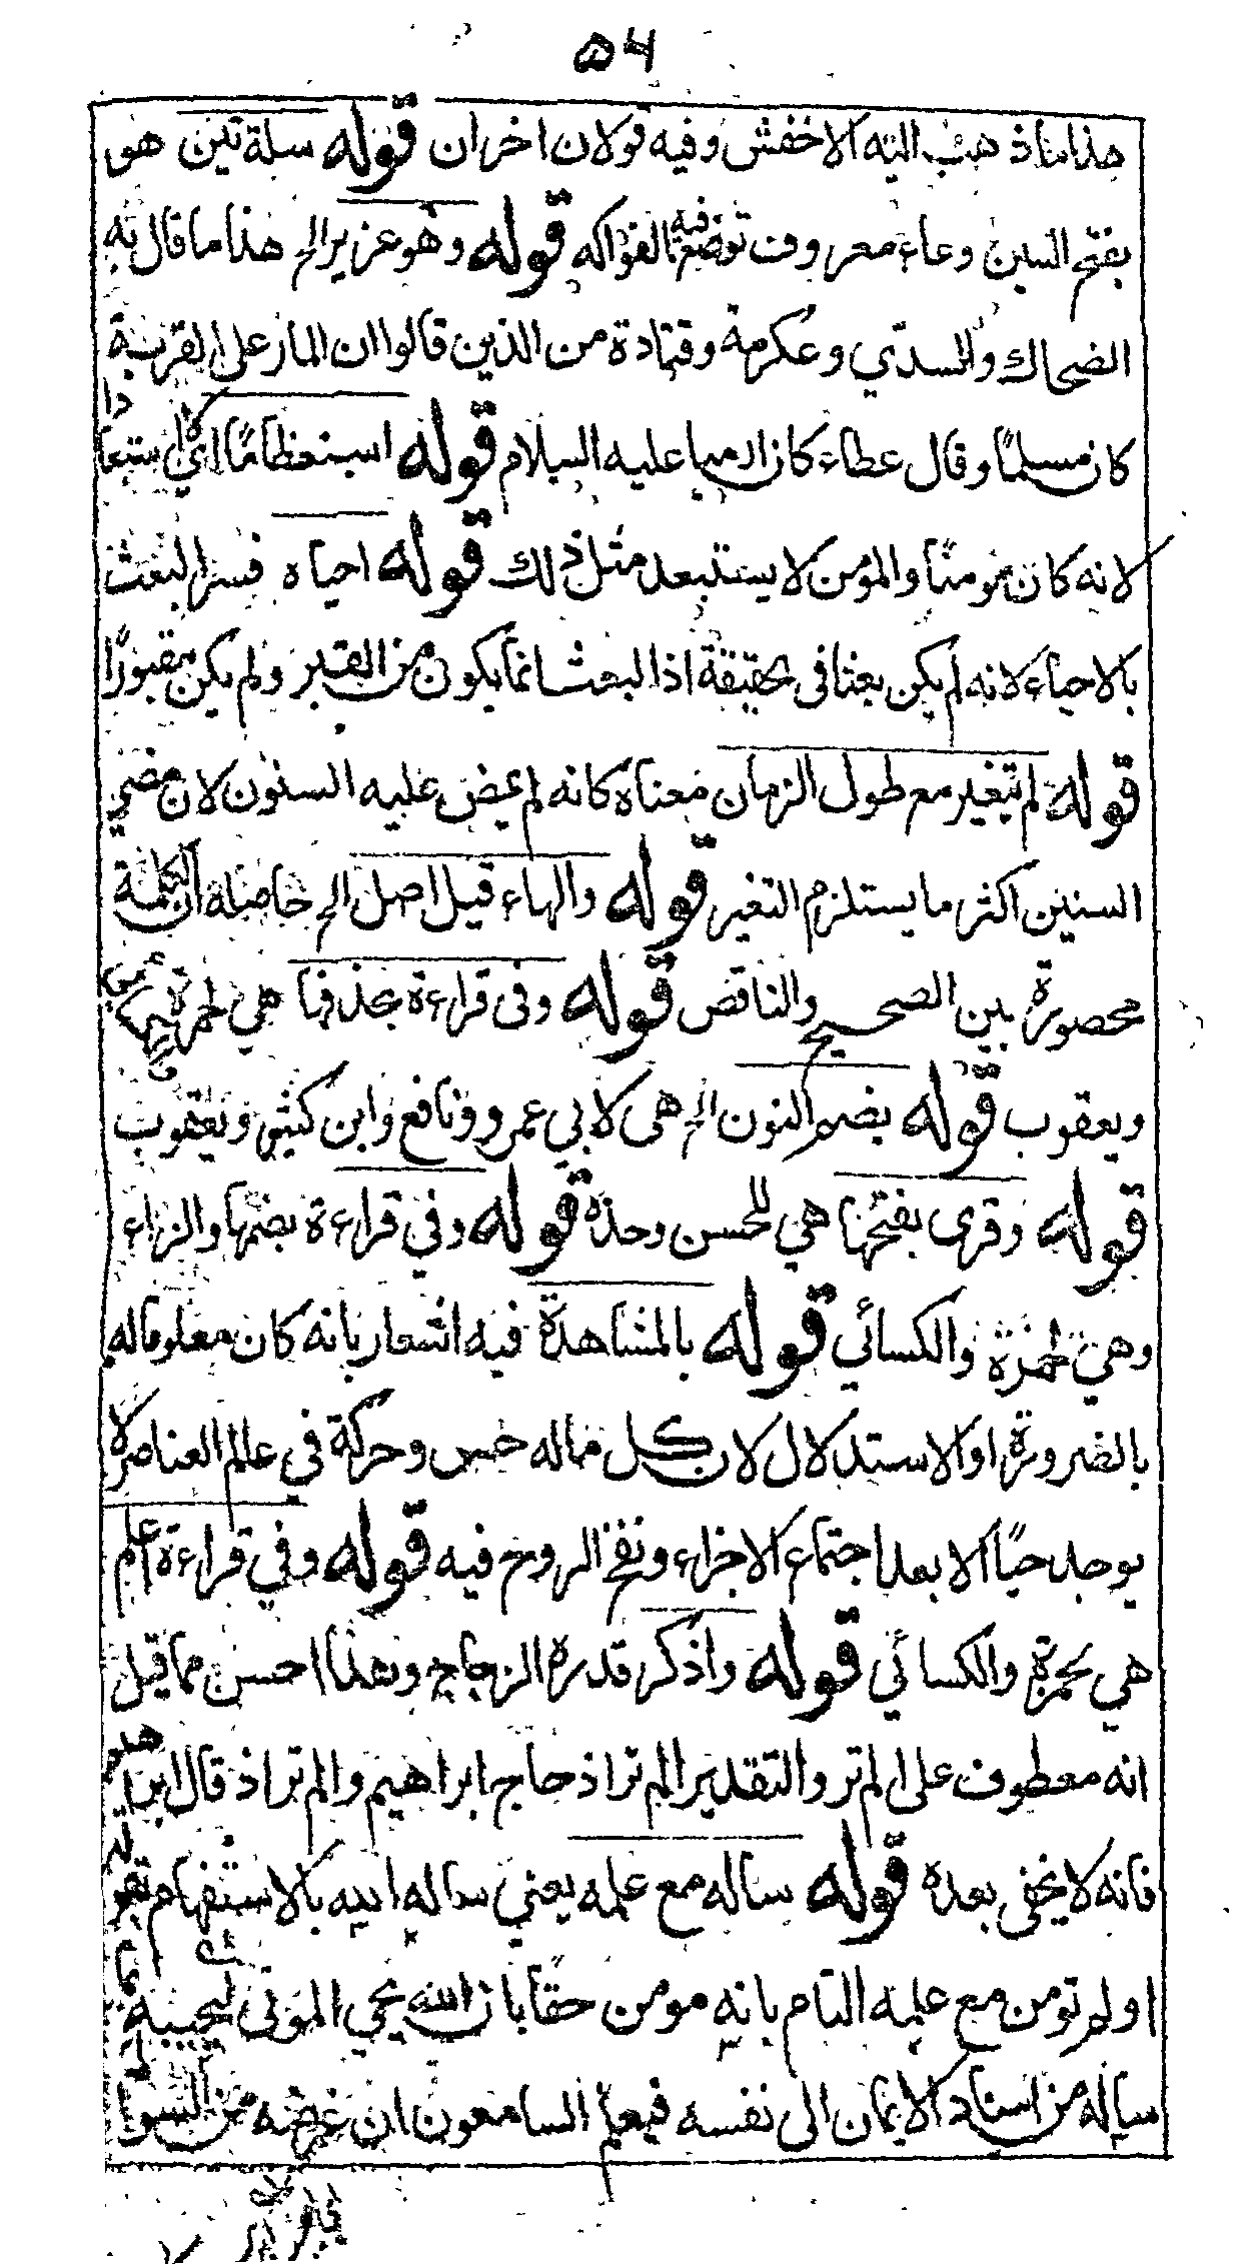 ٥٤
هذا ما ذهب اليه الاخفش وفيه قولان اخران قوله سلة تين هو
بفتح السين وعاء معروف توضع فيه الفواكه قوله وهو عزير الخ هذا ما قال به
الضحاك والسدي وعكرمة وقتادة من الذين قالوا ان المار على القرية
كان مسلمًا وقال عطاء كان ارميا عليه السلام قوله استعظامًا اي لا استبعادا
لانه كان مومنًا والمومن لا يستبعد مثل ذلك قوله احياه فسر البعث
بالاحياء لانه لم يكن بعثا في الحقيقة اذ البعث انما يكون من القبر ولم يكن مقبورًا
قوله لم يتغير مع طول الزمان معناه كانه لم يمض عليه السنون لان مضي
السنين اكثر ما يستلزم التغير قوله والهاء قيل اصل الخ حاصله ان الكلمة
محصورة بين الصحيح والناقص قوله وفي قراءة بحذفها هي لحمزة
ويعقوب قوله بضم النون الخ هي لابي عمرو ونافع وابن كثير ويعقوب
قوله وقرى بفتحها هي للحسن وحده قوله وفي قراءة بضمها والزاء
وهي لحمزة والكسائي قوله بالمشاهدة فيه اشعار بانه كان معلوما له
بالضرورة او الاستدلال لان كل ما له حس وحركة في عالم العناصر لا
يوجد حيًا الا بعد اجتماع الاجزاء ونفخ الروح فيه قوله وفي قراءة اعلم
هي لحمزة والكسائي قوله واذكر قدره الزجاج وهذا احسن مما قيل
انه معطوف على الم تر والتقدير الم تر اذ حاج ابراهيم والم تر اذ قال ابراهيم
فانه لا يخفى بعده قوله ساله مع علمه يعني ساله ايه بالاستفهام بقوله
اولم تومن مع علمه التام بانه مومن حقا بان الله يحي الموتى ليجيبه بما
ساله من اسناد الايمان الى نفسه فيعلم السامعون ان غرضه من السوال